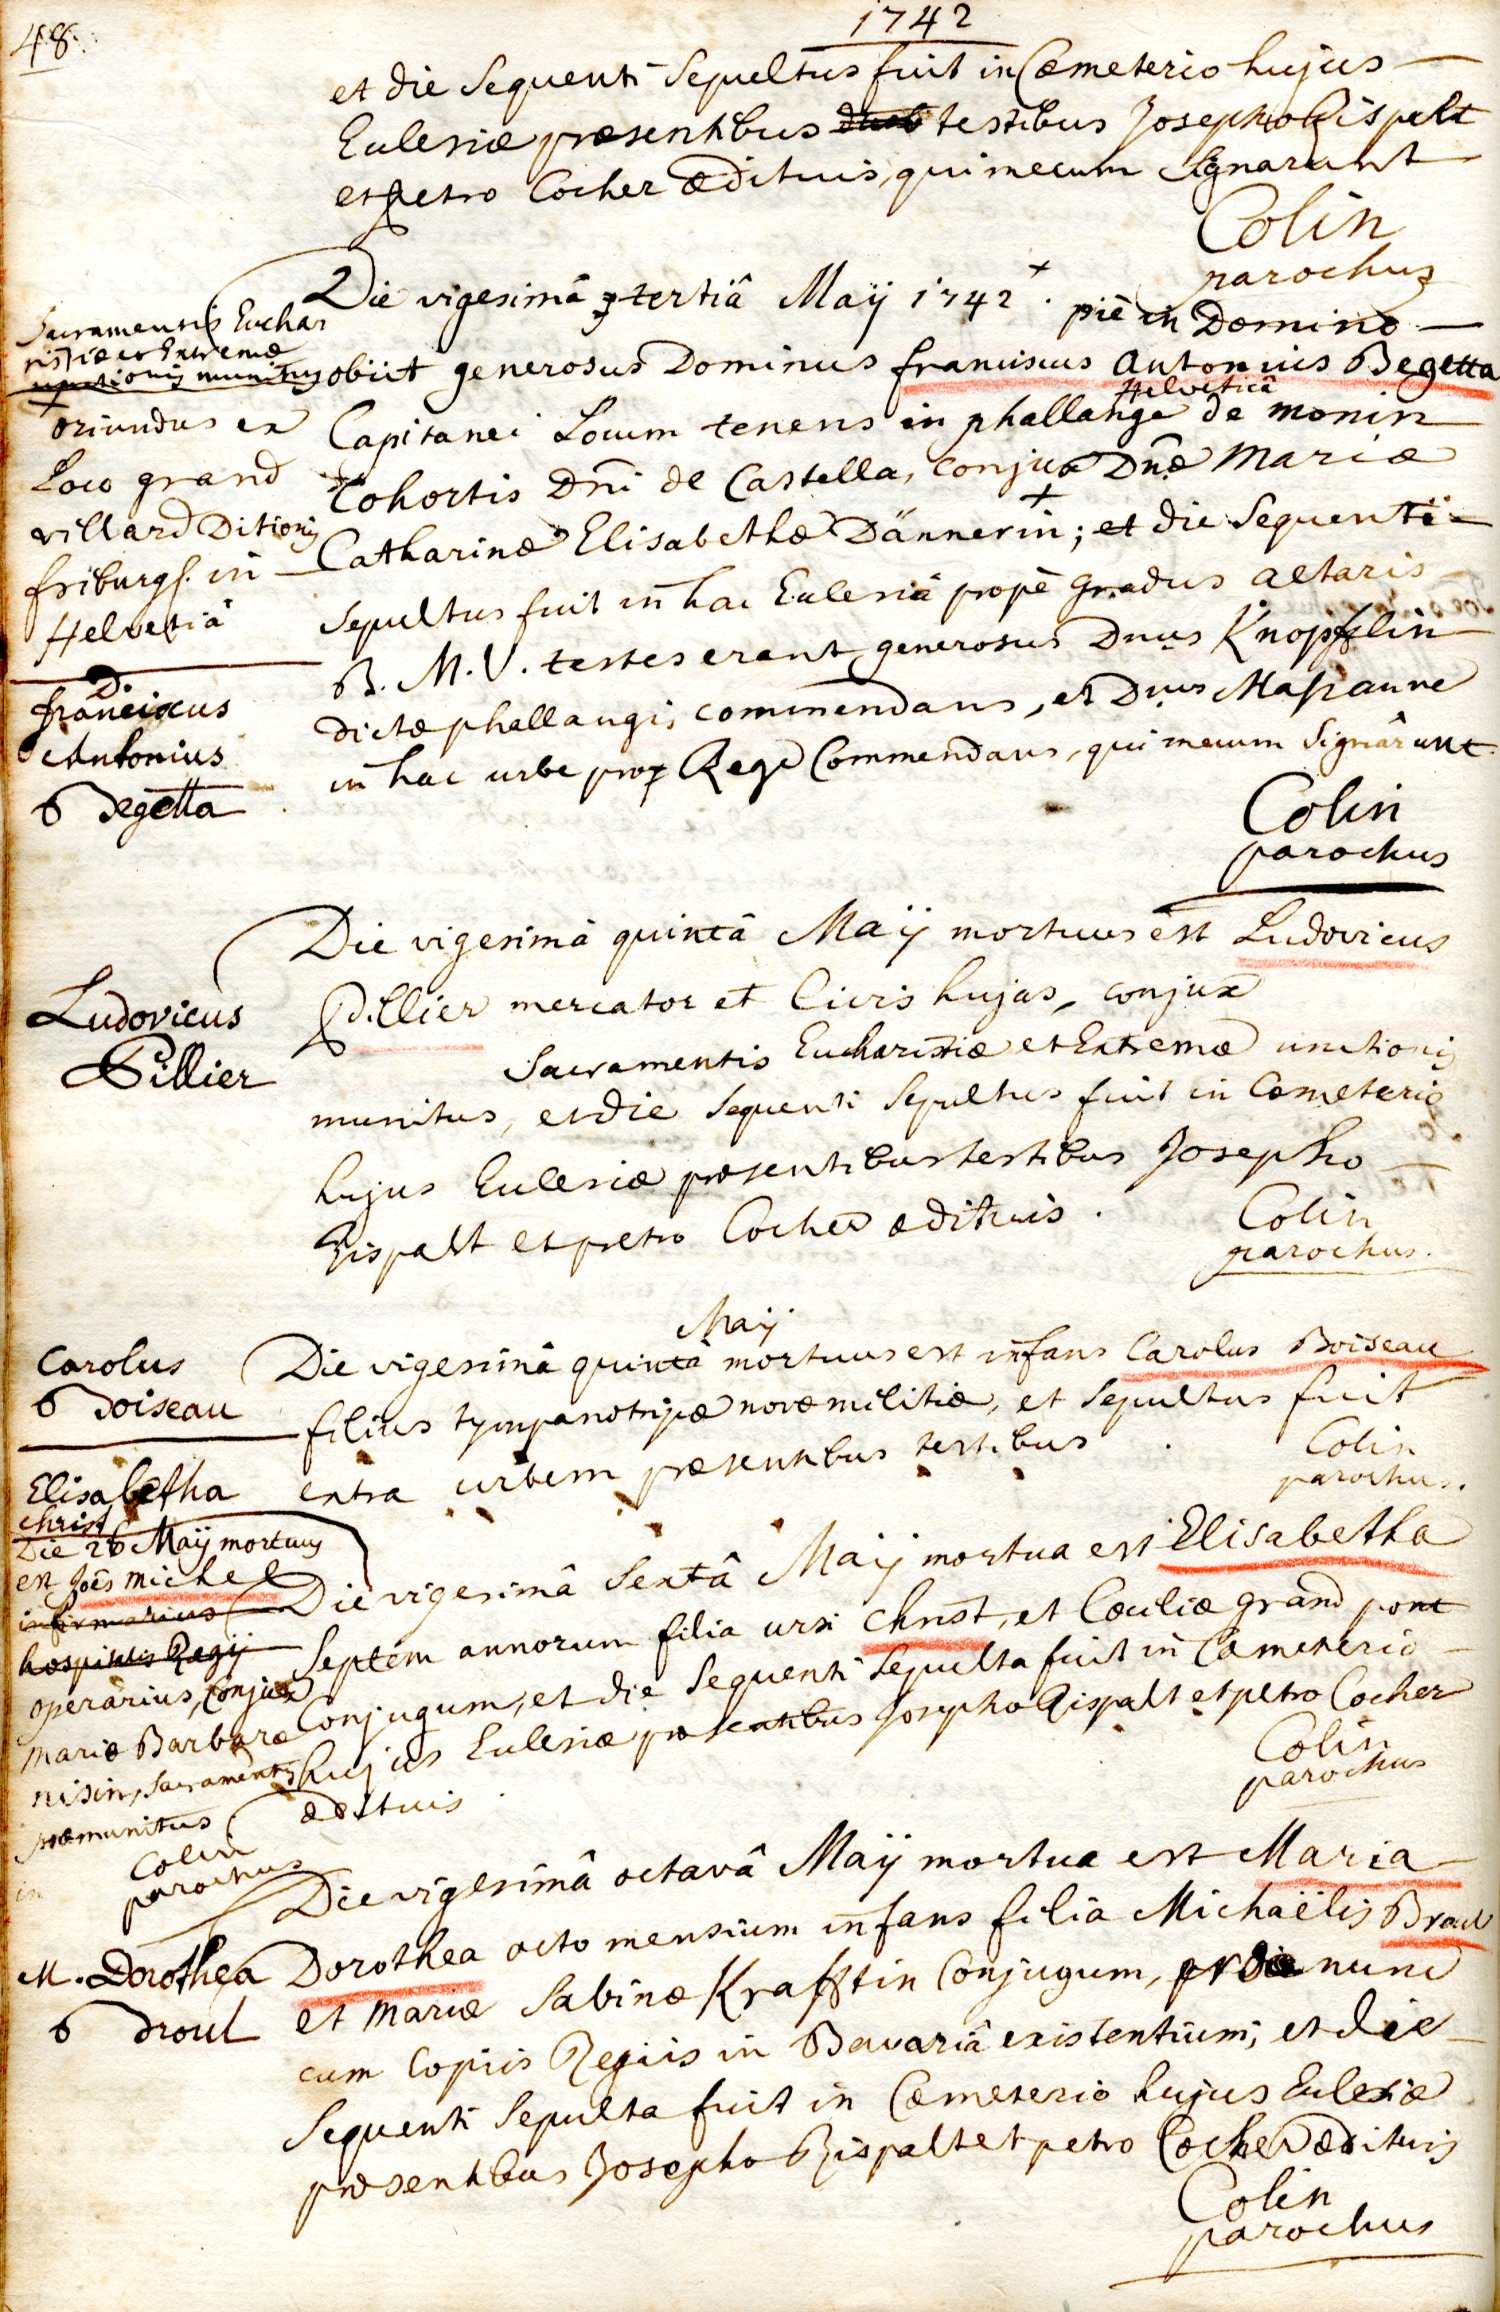 48.
1742
et die sequenti sepultus fuit in Cœmeterio hujus
Ecclesiæ præsentibus testibus Josepho Rispalt
et petro Cocher ædituis, qui mecum signarunt
Colin
parochus
Sacramentis Eucha
ristiæ et Extremæ
unctionis munitus
+
oriundus ex
Loco grand
villard Ditionis
friburgs. in
Helvetiâ
D.
franciscus
Antonius
Begetta
Die vigesimâ tertiâ Maÿ 1742 + . piè in Domino
obiit generosus Dominus franciscus Antonius Begetta
Helveticâ
Capitanei Locum tenens in phallange de monin
Cohortis Dñi de Castella, conjux Dñæ Mariæ
Catharinæ Elisabethæ Dännerin +; et die sequenti
sepultus fuit in hac Ecclesiâ propè gradus altaris
B. M. V. testes erant generosus Dnus Knopfflin
dictæ phallangis commendans, et Dnus Massaune
in hac urbe pro Rege Commendans, qui mecum signârunt.
Colin
parochus
Ludovicus
Pillier
Die vigesimâ quintâ Maÿ mortuus est Ludovicus
Pillier mercator et Civis hujas, conjux
Sacramentis Eucharistiæ et Extremæ unctionis
munitus, et die sequenti sepultus fuit in Cœmeterio
hujus Ecclesiæ præsentibus testibus Josepho
Rispalt et petro Cocher ædituis.
Colin
parochus.
Carolus
Boiseau
Maÿ
Die vigesimâ quintâ mortuus est infans Carolus Boiseau
filius tympanotripæ novæ militiæ, et sepultus fuit
extra urbem præsentibus testibus .
Colin
parochus.
Elisabetha
Christ
Die 26 Maÿ mortuus
est Joẽs Michel
infirmarius
hospitalis Regij
operarius, conjux
Mariæ Barbaræ
nisin, sacramentis
præmunitus
Colin
parochus
Die vigesimâ sextâ Maÿ mortua est Elisabetha
septem annorum filia ursi Christ, et Cœciliæ grand pont
Conjugum, et die sequenti sepulta fuit in Cœmeterio
hujus Ecclesiæ præsentibus Josepho Rispalt et petro Cocher
ædituis.
Colin
parochus
M. Dorothea
Droul
Die vigesimâ octavâ Maÿ mortua est Maria
Dorothea octo mensium infans filia Michaëlis
et Mariæ Sabinæ Krafftin Conjugum, nunc
cum Copiis Regiis in Bavariâ existentium; et die
sequenti sepulta fuit in Cœmeterio hujus Ecclesiæ
præsentibus Josepho Rispalt et petro Cocher ædituis
Colin
parochus